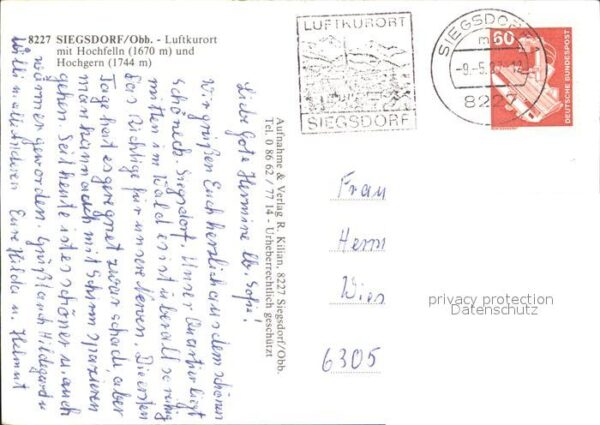 8227 SIEGSDORF/Obb. - Luftkurort
mit Hochfelln (1670 m) und
Hochgern (1744 m)
LUFTKURORT
SIEGSDORF
SIEGSDORF
-9.-5.
8227
60
DEUTSCHE BUNDESPOST
Aufnahme & Verlag R. Kilian, 8227 Siegsdorf/Obb.
Tel. 0 86 62 / 77 14 - Urheberrechtlich geschützt
Liebe Gote Hermine lb. Sofie!
Wir grüßen Euch herzlich aus dem schönen
Siegsdorf. Unser Quartier liegt
mitten im Wald es ist überall so ruhig
das Richtige für unsere Nerven. Die ersten
Tage hat es geregnet zwar schade, aber
man kann auch mit Schirm spazieren
gehen. Seit heute ist es schöner u. auch
wärmer geworden. Grüßt auch Hildegard u
Willi u. alle Anderen Eure Hilda u. Helmut
Frau
Herm
Wies
6305
privacy protection
Datenschutz